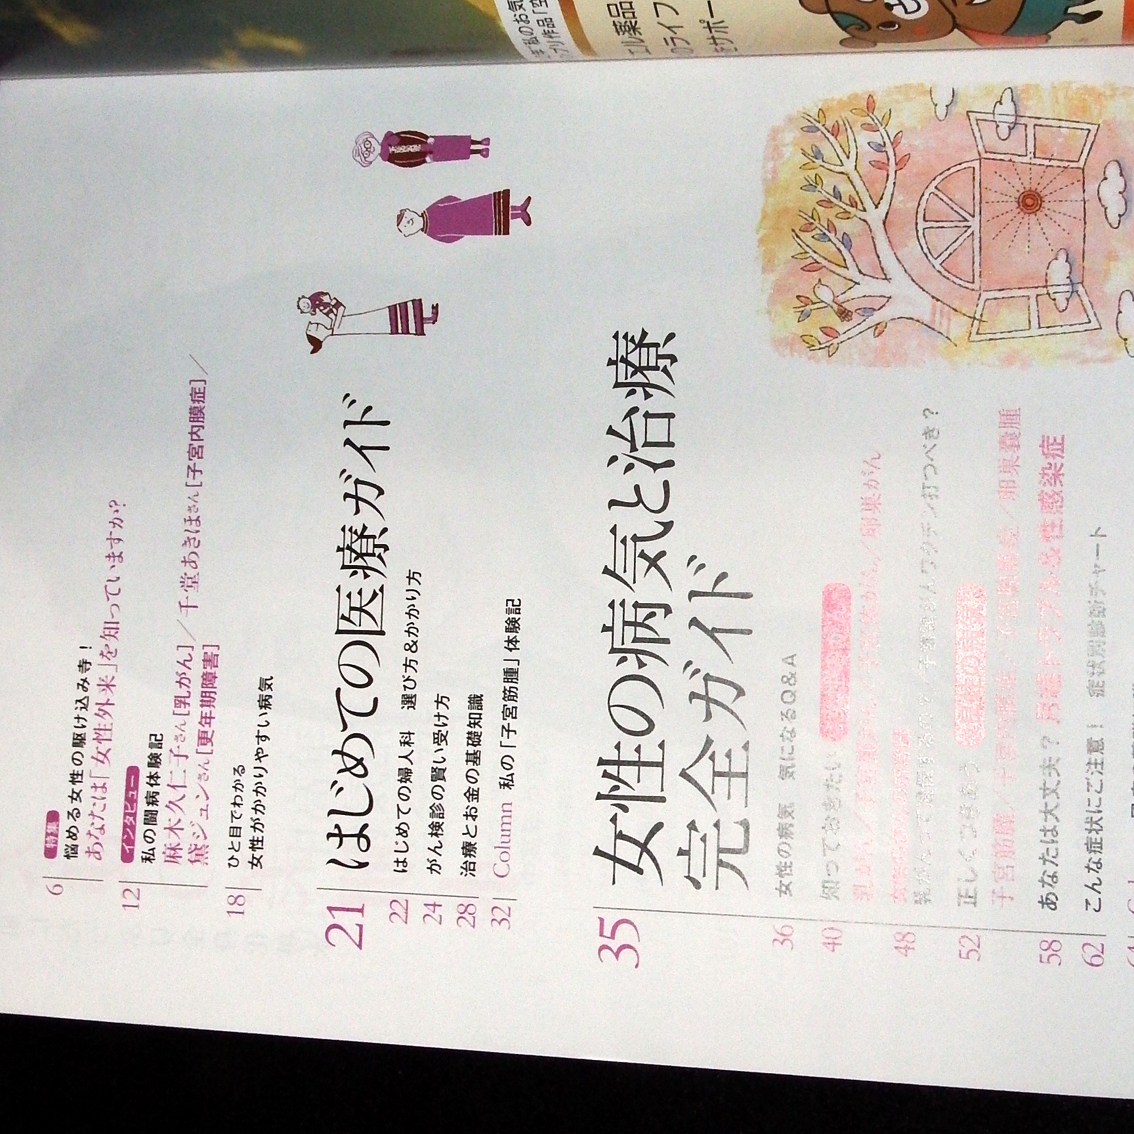 6
特集
悩める女性の駆け込み寺！
あなたは「女性外来」を知っていますか？
12
インタビュー
私の闘病体験記
麻木久仁子さん［乳がん］／千堂あきほさん［子宮内膜症］／
黛ジュンさん［更年期障害］
18
ひと目でわかる
女性がかかりやすい病気
21
はじめての医療ガイド
22
はじめての婦人科 選び方＆かかり方
24
がん検診の賢い受け方
28
治療とお金の基礎知識
32
Column 私の「子宮筋腫」体験記
35
女性の病気と治療
完全ガイド
36
女性の病気 気になるQ＆A
40
知っておきたい
卵巣がん
48
ワクチン打つべき？
52
正しく
子宮筋腫／
／卵巣嚢腫
58
あなたは大丈夫？
トラブル＆性感染症
62
こんな症状にご注意！ 症状別診断チャート
64
私のお気
プリ作品「空
エル薬品
のライフ
をサポー